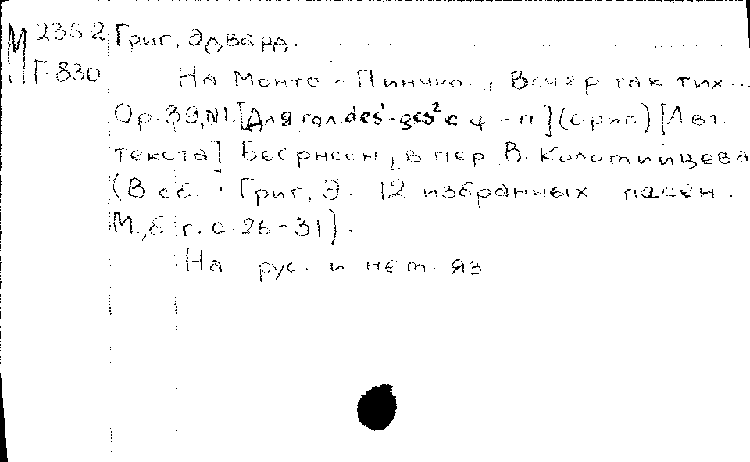 М 235-2 Григ, Эдвард.
Г-830 На Монте-Пинчио., Вечер так тих...
Op.39,№1.[Для гол. des¹-ges² с ф-п](ориг)[Авт.
текста] Бьернсон, в пер. В. Коломийцева
(В сб.: Григ, Э. 12 избранных песен.
М., б. г. с. 26-31).
На рус. и нем. яз